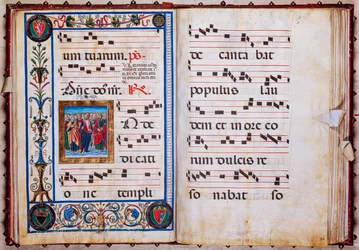 um tuarum. ps
Añc dõm̃. R
N de
di cati
o ne templi
de canta bat
populus lau
dem et in ore eo
rum dulcis re
so nabat so